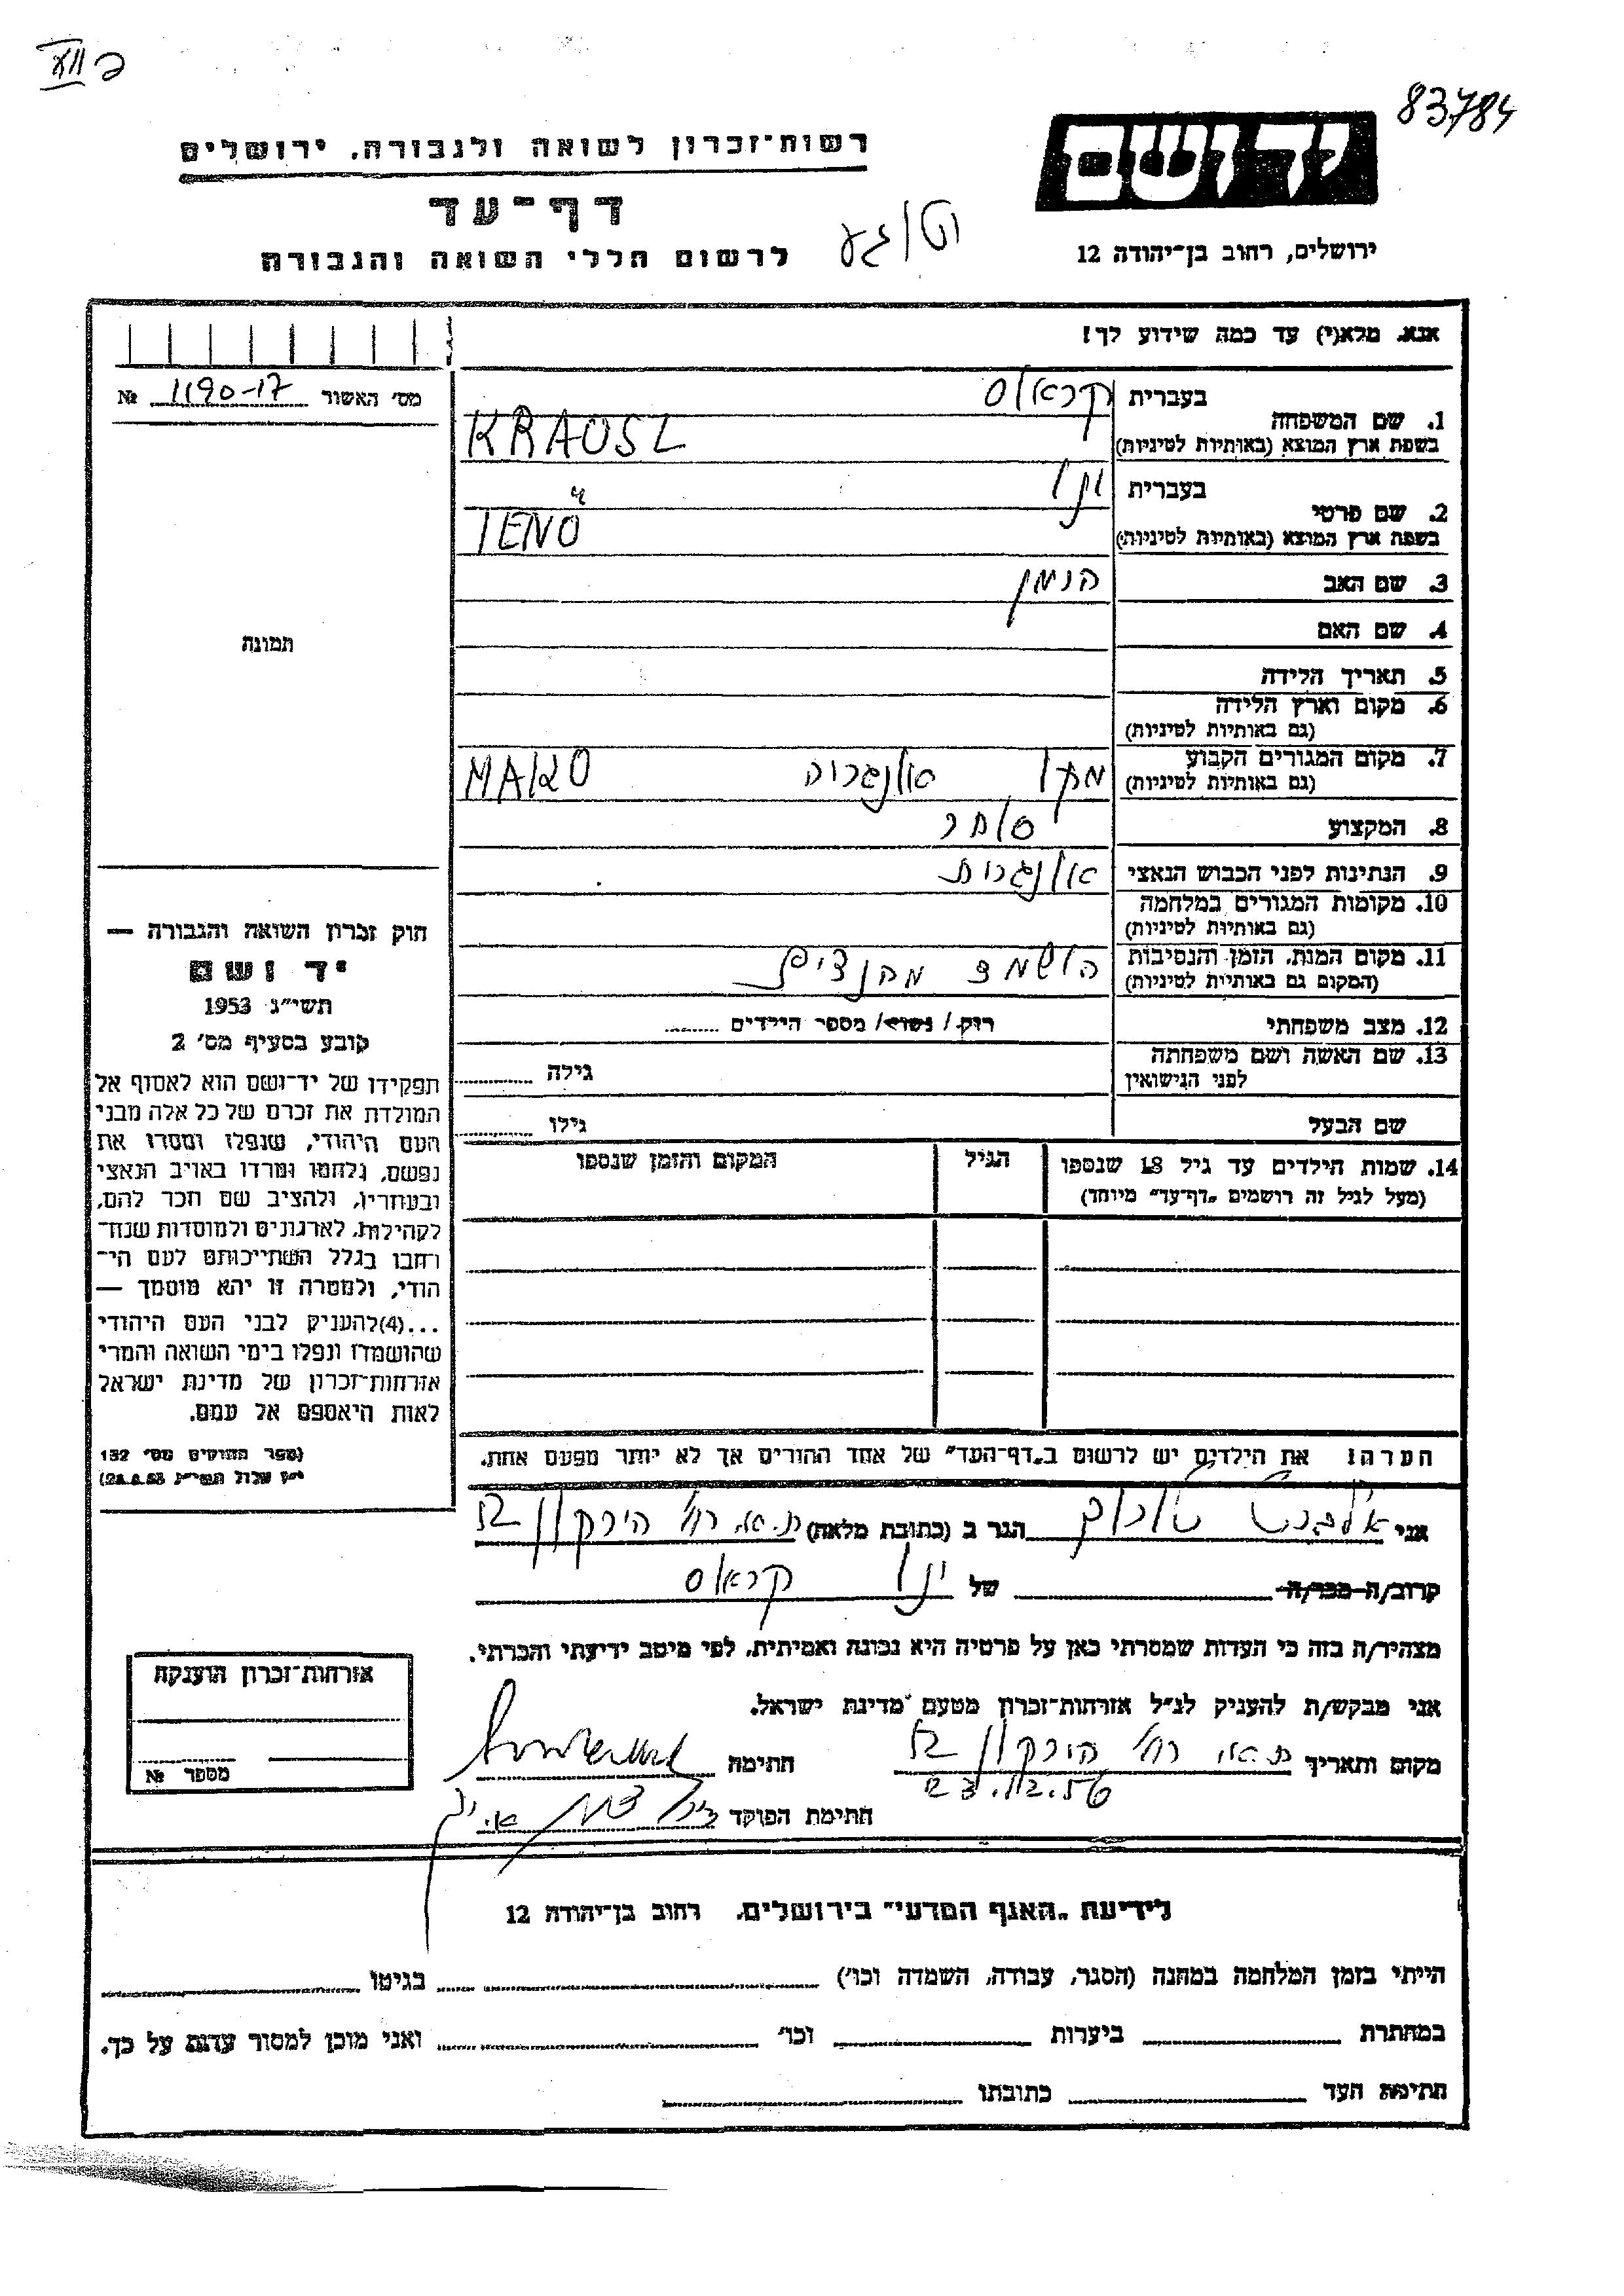 83784
יד ושם
רשות־זכרון לשואה ולגבורה, ירושלים
דף־עד
לרשום חללי השואה והגבורה
ירושלים, רחוב בן־יהודה 12
אנא, מלא(י) עד כמה שידוע לך!
מס׳ האשור 1190-17 №
תמונה
1. שם המשפחה בעברית קראוס
בשפת ארץ המוצא (באותיות לטיניות) KRAUSZ
2. שם פרטי בעברית ינו
בשפת ארץ המוצא (באותיות לטיניות) IENÖ
3. שם האב הנמן
4. שם האם
5. תאריך הלידה
6. מקום וארץ הלידה
(גם באותיות לטיניות)
7. מקום המגורים הקבוע מקו אונגריה MAKO
(גם באותיות לטיניות)
8. המקצוע סוחר
9. הנתינות לפני הכבוש הנאצי אונגרית
10. מקומות המגורים במלחמה
(גם באותיות לטיניות)
11. מקום המות, הזמן והנסיבות הושמד מהנצים
(המקום גם באותיות לטיניות)
12. מצב משפחתי רוק/ נשוי/ מספר הילדים
13. שם האשה ושם משפחתה גילה
לפני הנישואין
שם הבעל גילו
14. שמות הילדים עד גיל 18 שנספו הגיל המקום והזמן שנספו
(מעל לגיל זה רושמים „דף־עד״ מיוחד)
הערה: את הילדים יש לרשום ב„דף־העד״ של אחד ההורים אך לא יותר מפעם אחת.
חוק זכרון השואה והגבורה —
יד ושם
תשי״ג 1953
קובע בסעיף מס׳ 2
תפקידו של יד־ושם הוא לאסוף אל
המולדת את זכרם של כל אלה מבני
העם היהודי, שנפלו ומסרו את
נפשם, נלחמו ומרדו באויב הנאצי
ובעוזריו, ולהציב שם וזכר להם,
לקהילות, לארגונים ולמוסדות שנח־
רחבו בגלל השתייכותם לעם הי־
הודי, ולמטרה זו יהא מוסמך —
...(4)להעניק לבני העם היהודי
שהושמדו ונפלו בימי השואה והמרי
אזרחות־זכרון של מדינת ישראל
לאות היאספם אל עמם.
(ספר החוקים מס׳ 132
אני הגר ב (כתובת מלאה) ת.א. רח׳ הירקון 52
קרוב/ה מכר/ה של ינו קראוס
מצהיר/ה בזה כי העדות שמסרתי כאן על פרטיה היא נכונה ואמיתית, לפי מיטב ידיעתי והכרתי.
אני מבקש/ת להעניק לנ״ל אזרחות־זכרון מטעם מדינת ישראל.
מקום ותאריך ת.א. רח׳ הירקון 52 חתימה
23.12.56
חתימת הפוקד
אזרחות־זכרון הוענקה
מספר №
לידיעת „האגף המדעי״ בירושלים, רחוב בן־יהודה 12
הייתי בזמן המלחמה במחנה (הסגר, עבודה, השמדה וכו׳) בגיטו
במחתרת ביערות וכו׳ ואני מוכן למסור עדות על כך.
חתימת העד כתובתו